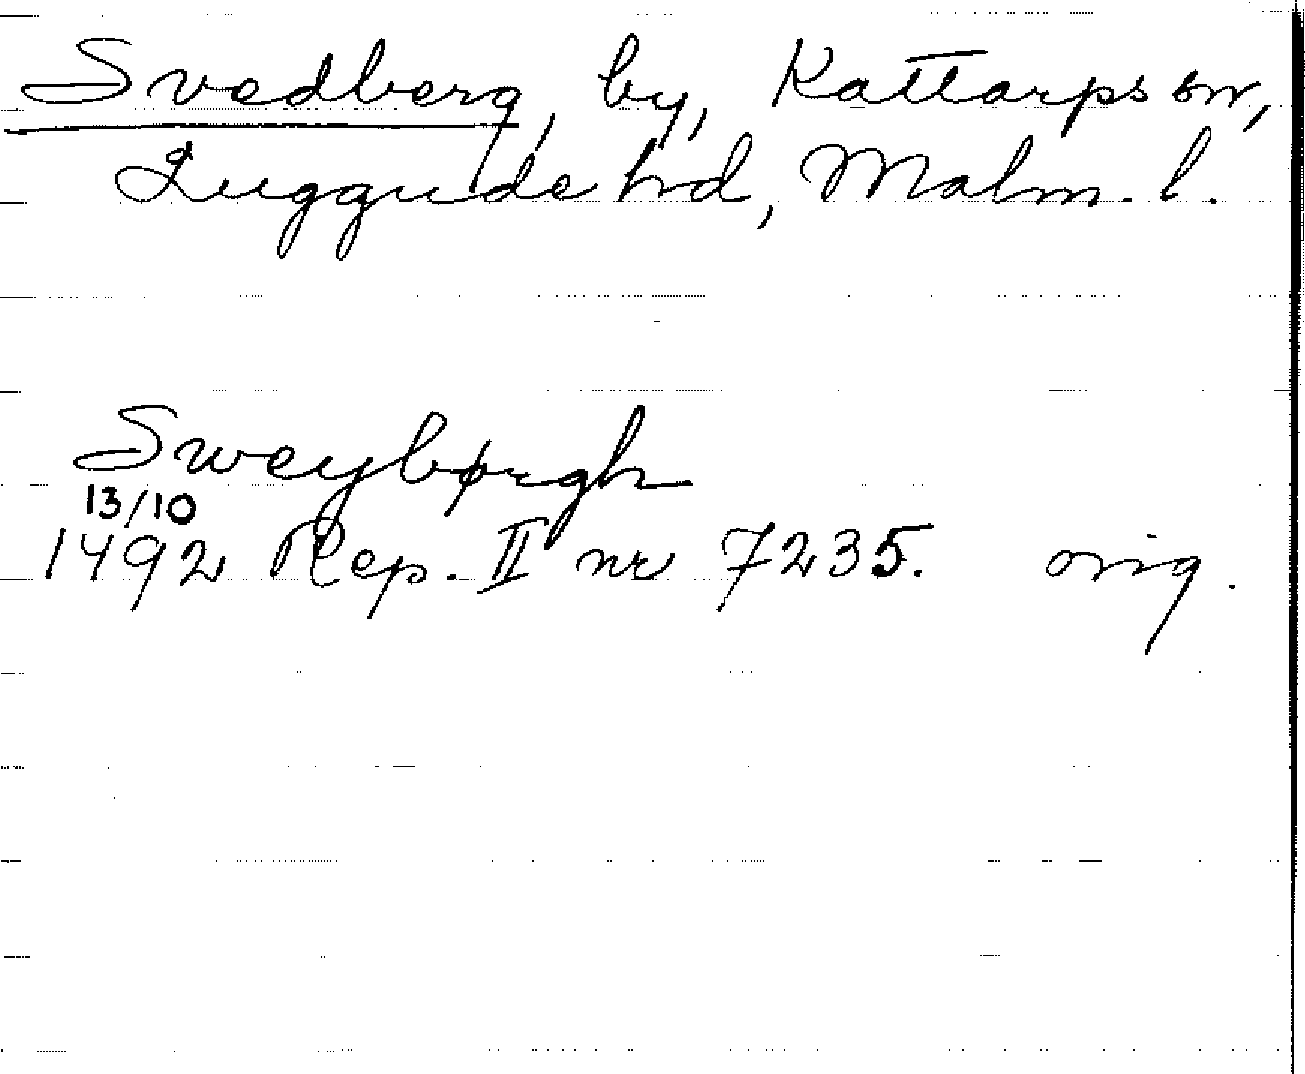 Svedberg, by, Kattarps sn,
Luggude hd, Malm. l.
Sweybørgh
13/10
1492 Rep. II nr 7235. orig.